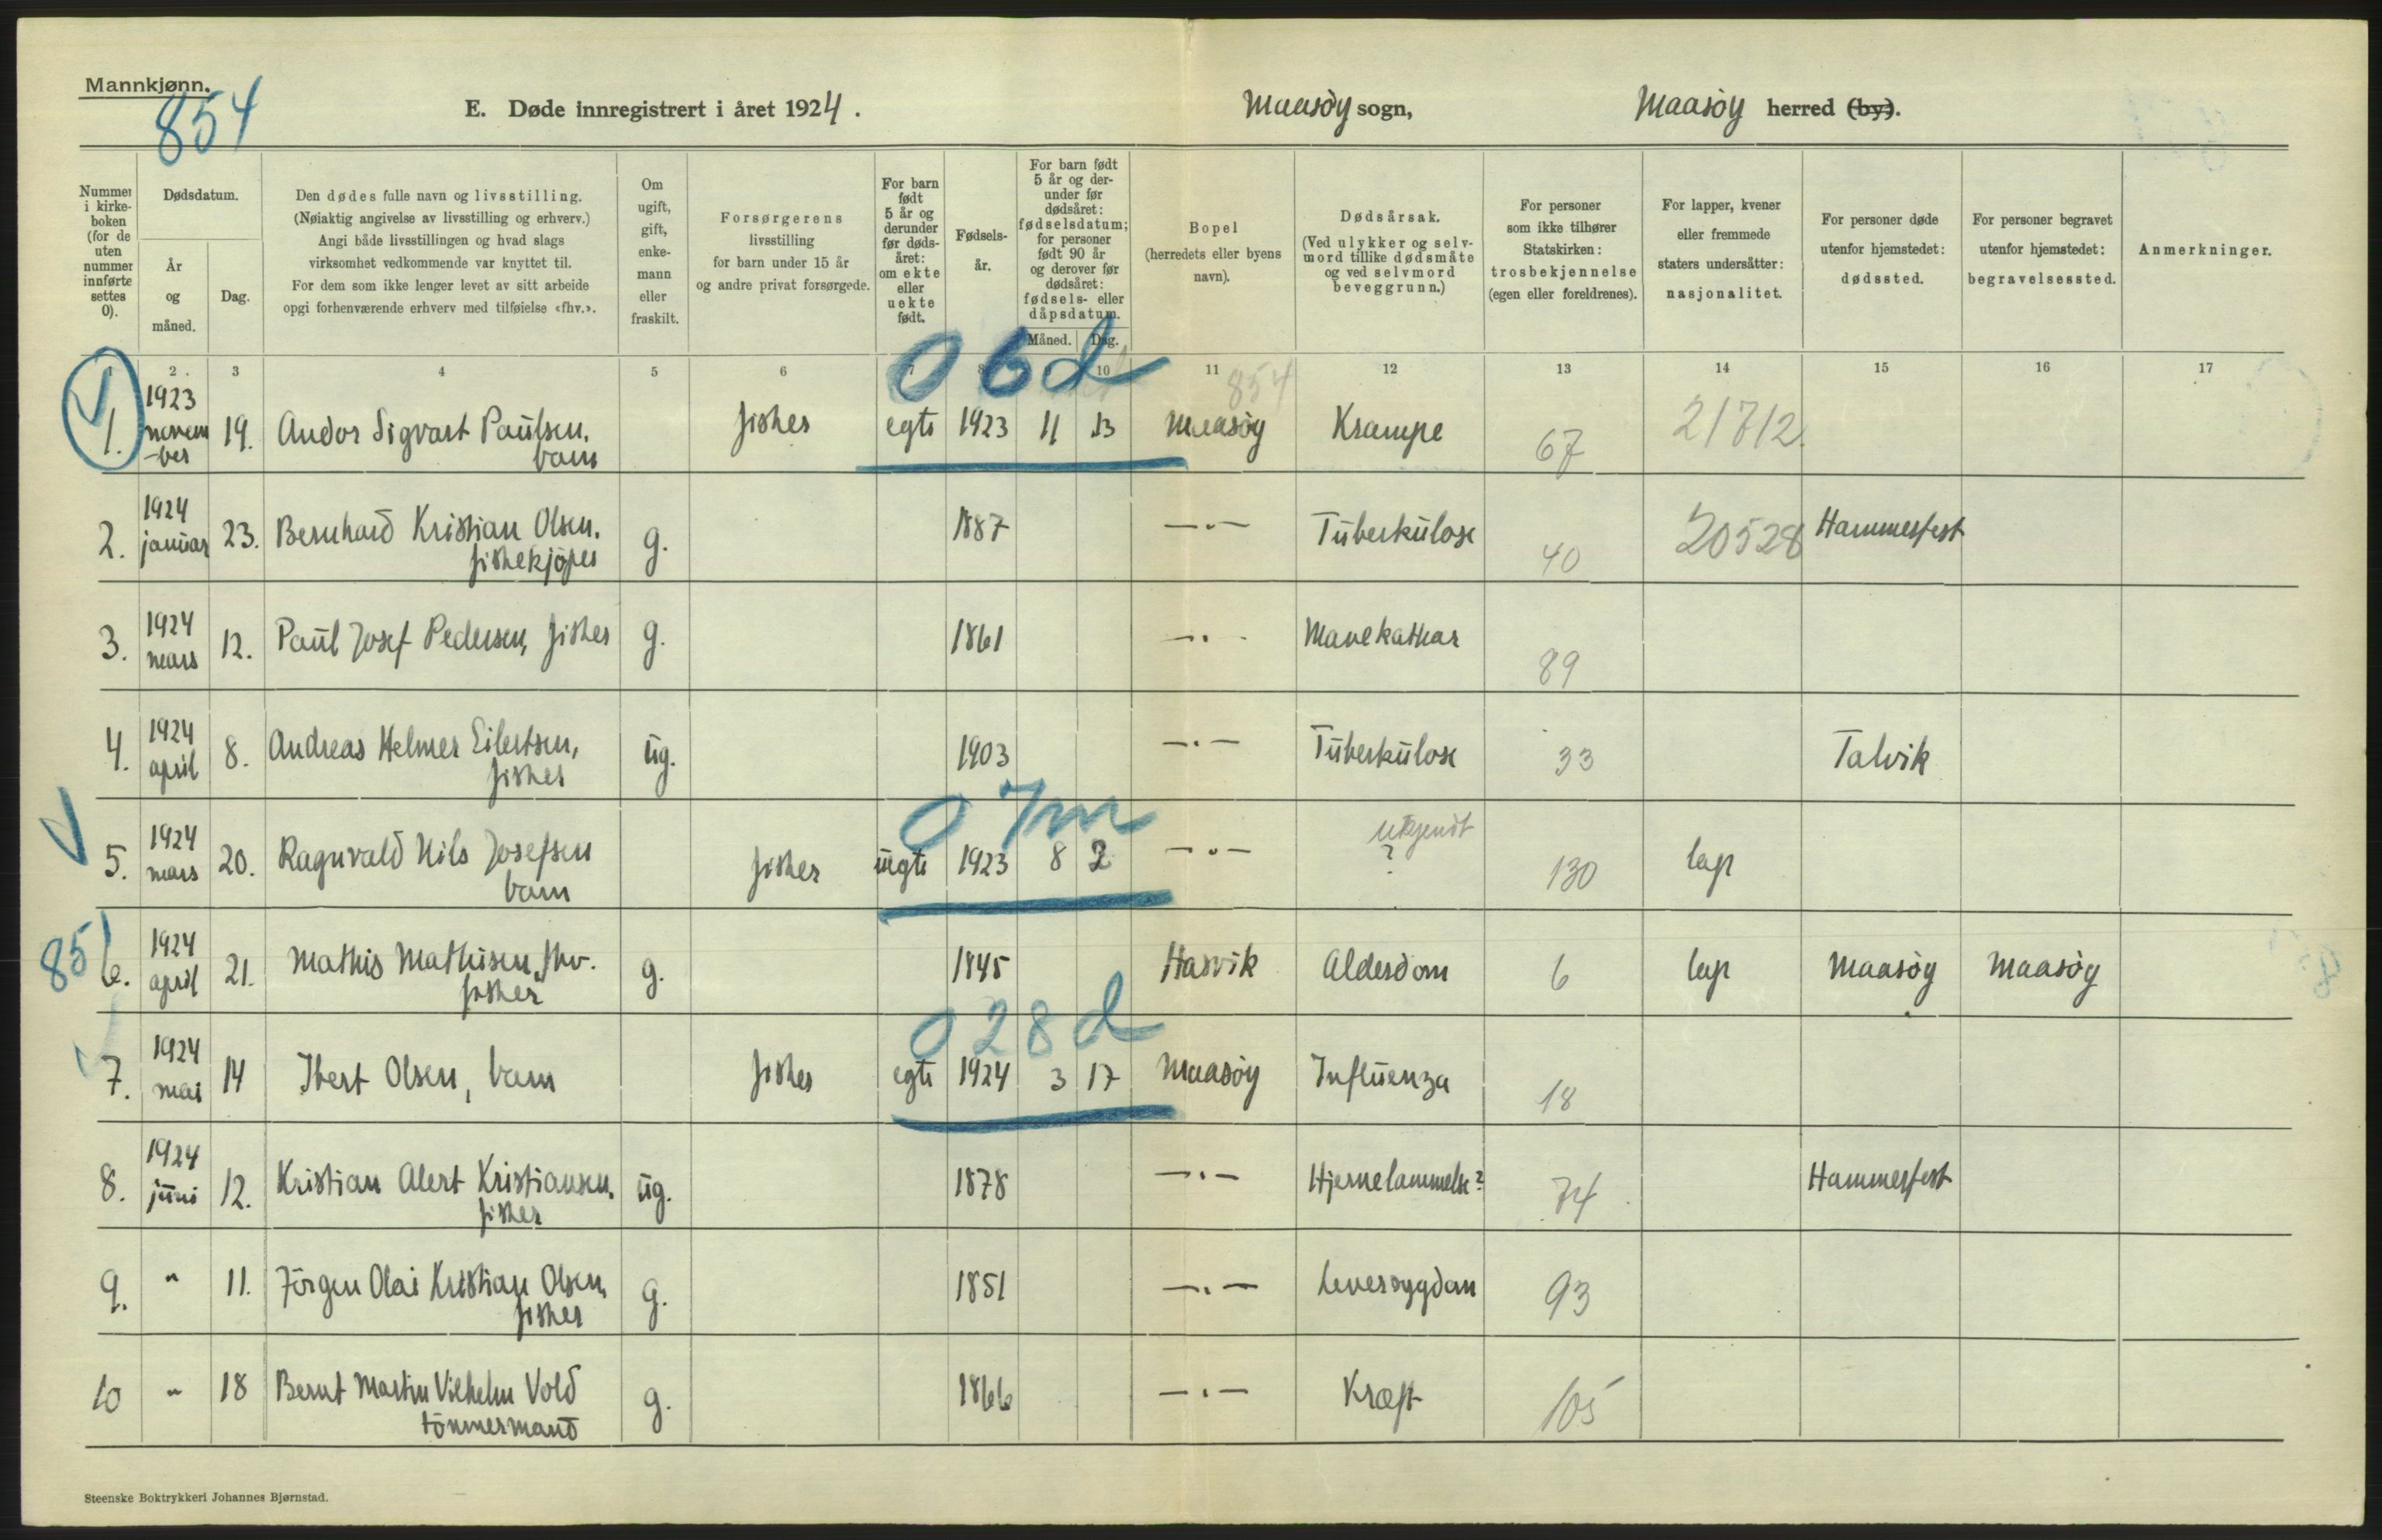 Mannkjønn.
854
E. Døde innregistrert i året 1924.
Maasöy sogn,
Maasöy herred (by).
Nummer i kirke-boken (for de uten nummer innførte settes 0).
Dødsdatum.
År og måned.
Dag.
Den dødes fulle navn og livsstilling.
(Nøiaktig angivelse av livsstilling og erhverv.)
Angi både livsstillingen og hvad slags
virksomhet vedkommende var knyttet til.
For dem som ikke lenger levet av sitt arbeide
opgi forhenværende erhverv med tilføielse «fhv.».
Om ugift, gift, enke-mann eller fraskilt.
Forsørgerens
livsstilling
for barn under 15 år
og andre privat forsørgede.
For barn født 5 år og derunder før døds-året: om ekte eller uekte født.
Fødsels-år.
For barn født 5 år og der-under før dødsåret: fødselsdatum; for personer født 90 år og derover før dødsåret: fødsels- eller dåpsdatum.
Måned. Dag.
Bopel
(herredets eller byens
navn).
Dødsårsak.
(Ved ulykker og selv-
mord tillike dødsmåte
og ved selvmord
beveggrunn.)
For personer
som ikke tilhører
Statskirken:
trosbekjennelse
(egen eller foreldrenes).
For lapper, kvener
eller fremmede
staters undersåtter:
nasjonalitet.
For personer døde
utenfor hjemstedet:
dødssted.
For personer begravet
utenfor hjemstedet:
begravelsessted.
Anmerkninger.
1 2 3 4 5 6 7 8 9 10 11 12 13 14 15 16 17
0 6 d
854
1. 1923 novem-ber 19. Andor Sigvart Paulsen, barn fisker egte 1923 11 13 Maasöy Krampe 67 21712.
2. 1924 januar 23. Bernhard Kristian Olsen, fiskekjöper g. 1887 —"— Tuberkulose 40 20528 Hammerfest
3. 1924 mars 12. Paul Josef Pedersen, fisker g. 1861 —"— Mavekathar 89
4. 1924 april 8. Andreas Helmer Eilertsen, fisker ug. 1903 —"— Tuberkulose 33 Talvik
0 7 m
5. 1924 mars 20. Ragnvald Nils Josefsen barn fisker uegte 1923 8 2 —"— ukjendt ? 130 lap
851
6. 1924 april 21. Mathis Mathisen, fhv. fisker g. 1845 Hasvik Alderdom 6 lap Maasöy Maasöy
0 28 d
7. 1924 mai 14 Ibert Olsen, barn fisker egte 1924 3 17 Maasöy Influenza 18
8. 1924 juni 12. Kristian Alert Kristiansen, fisker ug. 1878 —"— Hjernelammelse? 74 Hammerfest
9. " 11. Jörgen Olai Kristian Olsen, fisker g. 1851 —"— Leversygdom 93
10 " 18 Bernt Martin Vilhelm Vold tömmermand g. 1866 —"— Kræft 105
Steenske Boktrykkeri Johannes Bjørnstad.